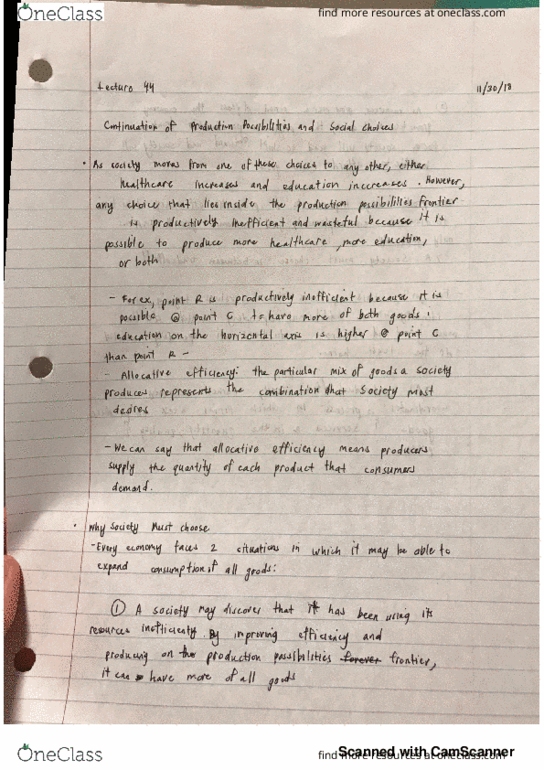 OneClass
find more resources at oneclass.com
Lecture 44
11/30/18
Continuation of Production Possibilities and Social choices
• As society moves from one of these choices to any other, either
healthcare increases and education inccreases. However,
any choice that lies inside the production possibilities frontier
is productively inefficient and wasteful because it is
possible to produce more healthcare, more education,
or both
- For ex, point R is productively inefficient because it is
possible @ point C to have more of both goods:
education on the horizontal axis is higher @ point C
than point R -
- Allocative efficiency: the particular mix of goods a society
produces represents the combination that society most
desires
- We can say that allocative efficiency means producers
supply the quantity of each product that consumers
demand.
• Why Society Must choose
- Every economy faces 2 situations in which it may be able to
expand consumption of all goods:
① A society may discover that it has been using its
resources inefficiently. By improving efficiency and
producing on the production possibilities forever frontier,
it can have more of all goods
OneClass
find more resources at oneclass.com
Scanned with CamScanner